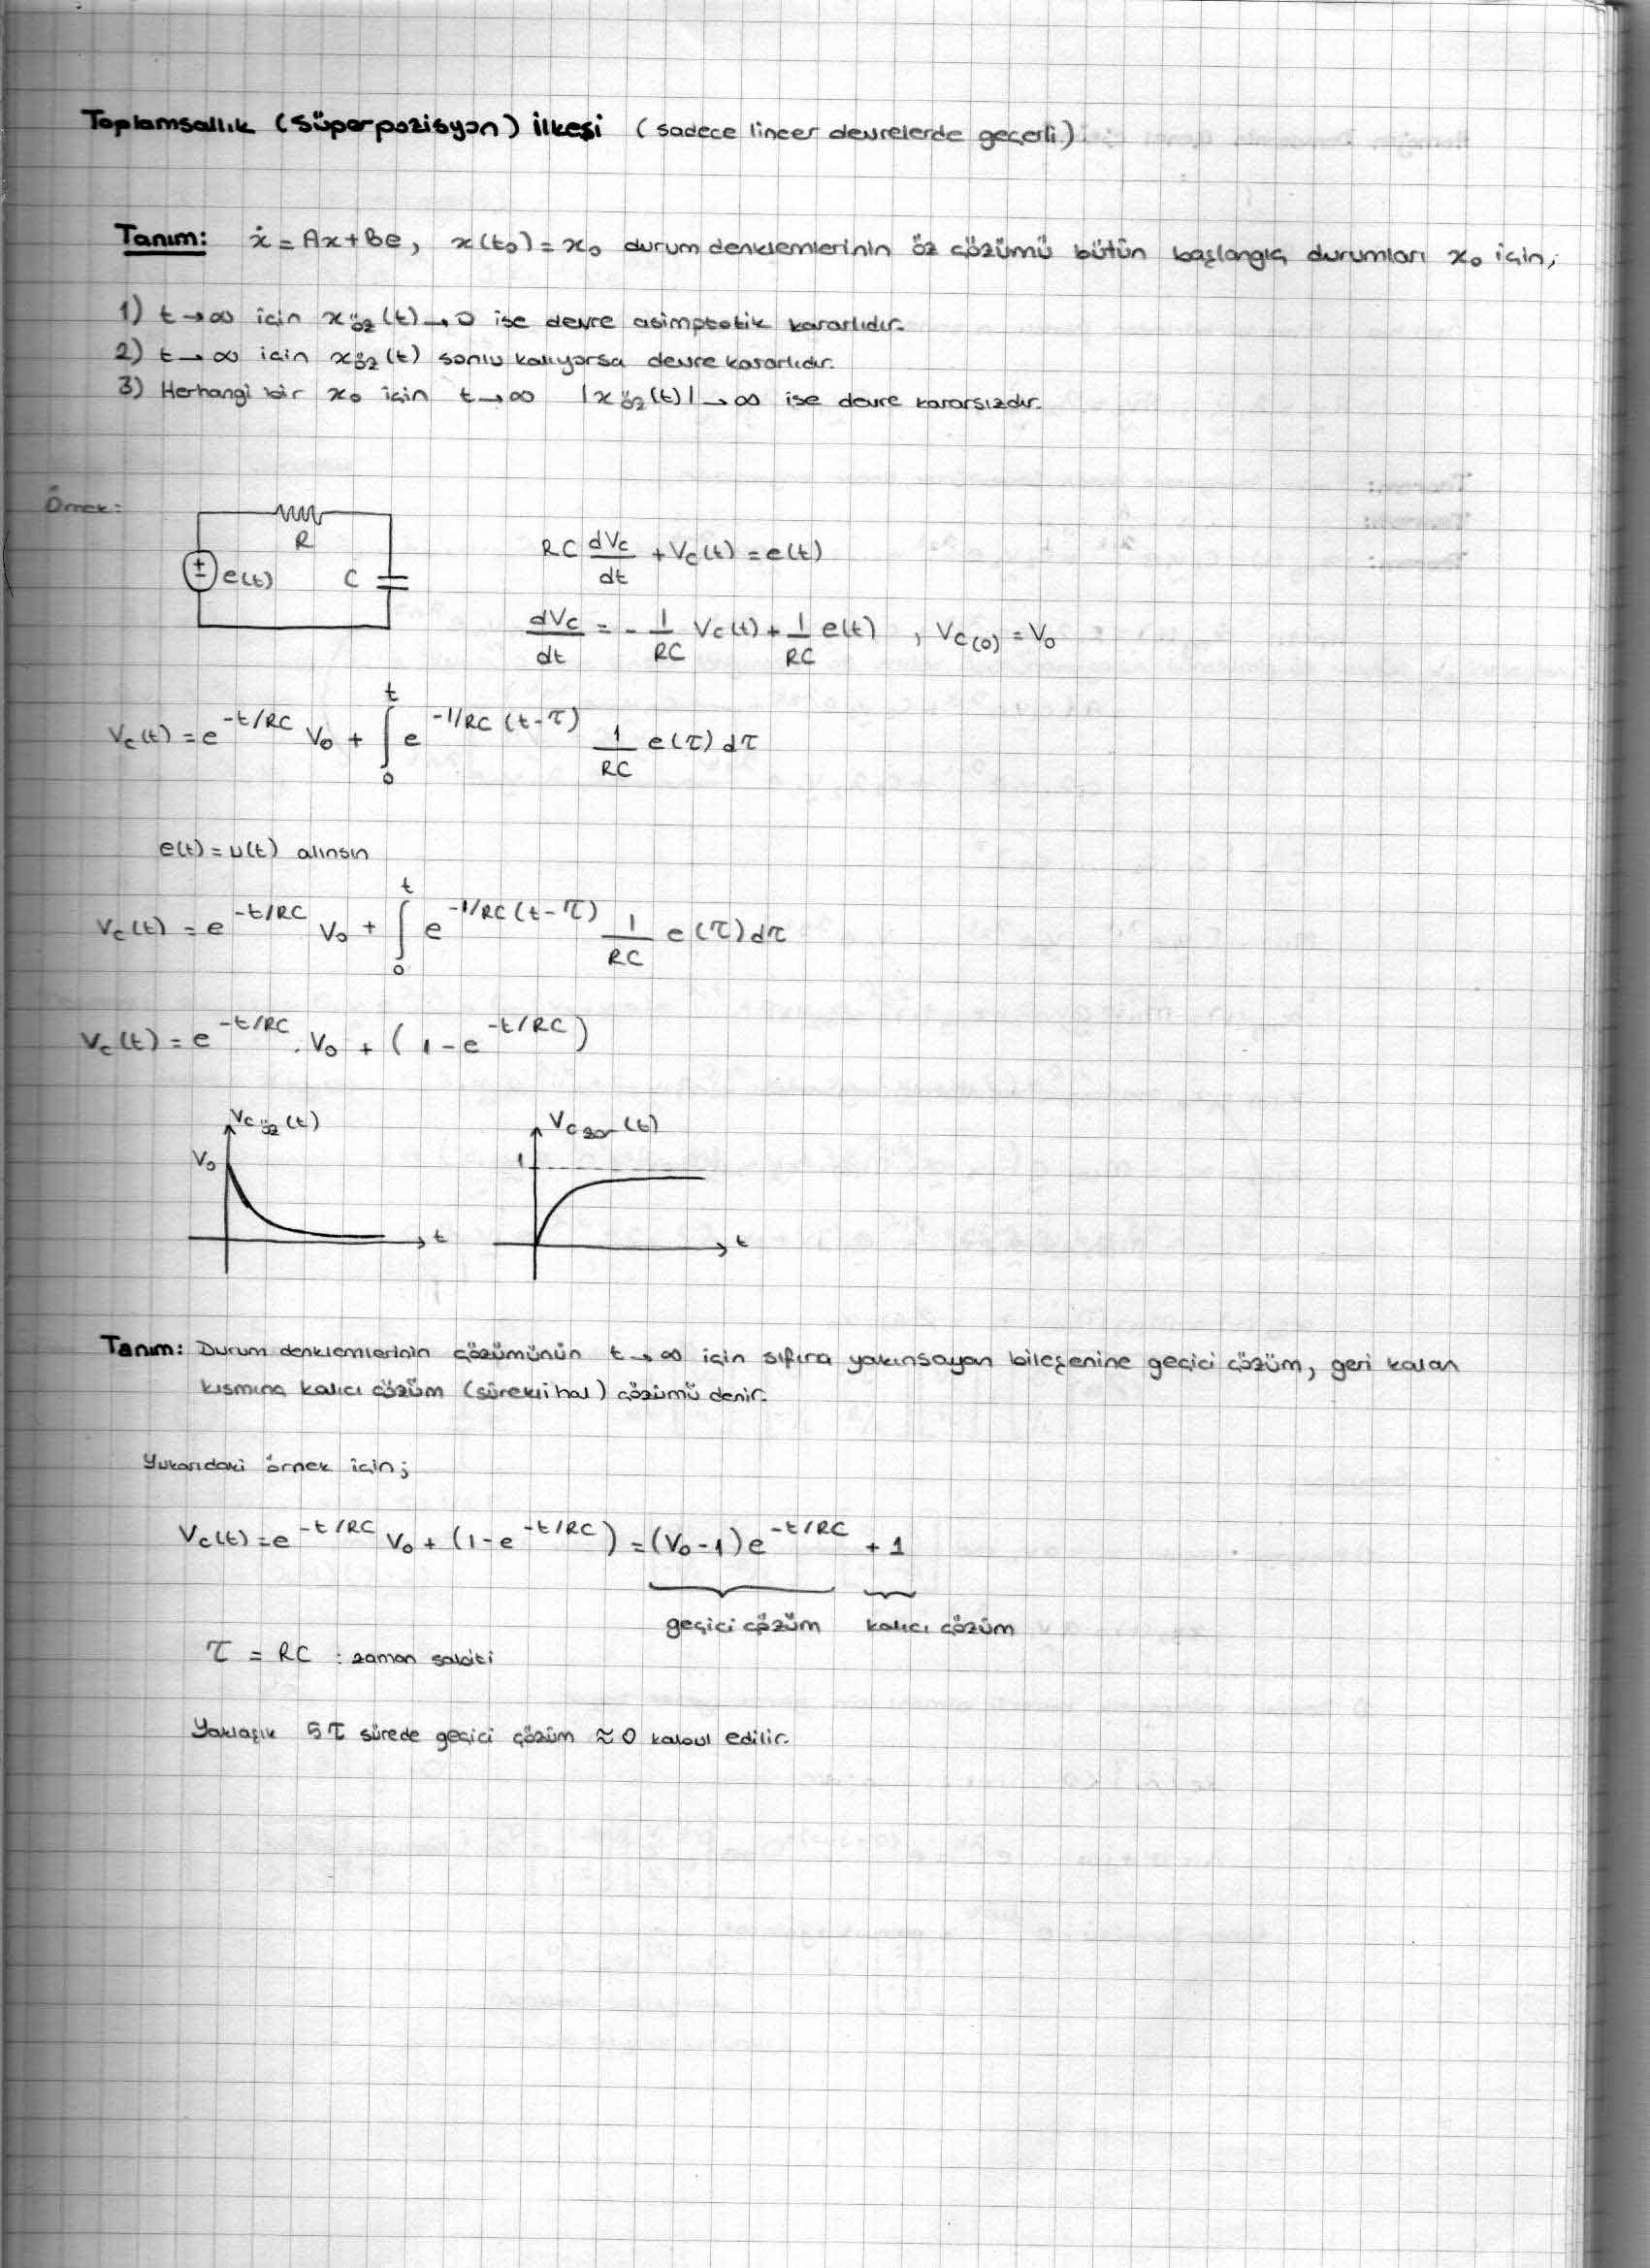 Toplamsallık (Süperpozisyon) İlkesi (sadece lineer devrelerde geçerli)
Tanım: ẋ = Ax + Be, x(t₀) = x₀ durum denklemlerinin öz çözümü bütün başlangıç durumları x₀ için;
1) t→∞ için xöz(t)→0 ise devre asimptotik kararlıdır.
2) t→∞ için xöz(t) sonlu kalıyorsa devre kararlıdır.
3) Herhangi bir x₀ için t→∞ |xöz(t)|→∞ ise devre kararsızdır.
Örnek:
R
e(t) C
RC dVc/dt + Vc(t) = e(t)
dVc/dt = - 1/RC Vc(t) + 1/RC e(t) , Vc(0) = V₀
Vc(t) = e^(-t/RC) V₀ + ∫₀ᵗ e^(-1/RC (t-τ)) 1/RC e(τ) dτ
e(t) = u(t) alınsın
Vc(t) = e^(-t/RC) V₀ + ∫₀ᵗ e^(-1/RC (t-τ)) 1/RC e(τ) dτ
Vc(t) = e^(-t/RC) . V₀ + (1 - e^(-t/RC))
Vc öz(t) Vc zor(t)
V₀ 1
t t
Tanım: Durum denklemlerinin çözümünün t→∞ için sıfıra yakınsayan bileşenine geçici çözüm, geri kalan
kısmına kalıcı çözüm (sürekli hal) çözümü denir.
Yukarıdaki örnek için;
Vc(t) = e^(-t/RC) V₀ + (1 - e^(-t/RC)) = (V₀ - 1) e^(-t/RC) + 1
geçici çözüm kalıcı çözüm
τ = RC : zaman sabiti
Yaklaşık 5τ sürede geçici çözüm ≈ 0 kabul edilir.